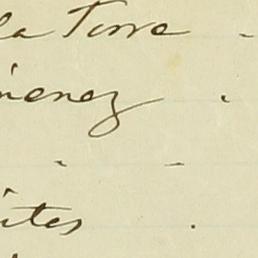 la Torre -
menez .
- -
ites .